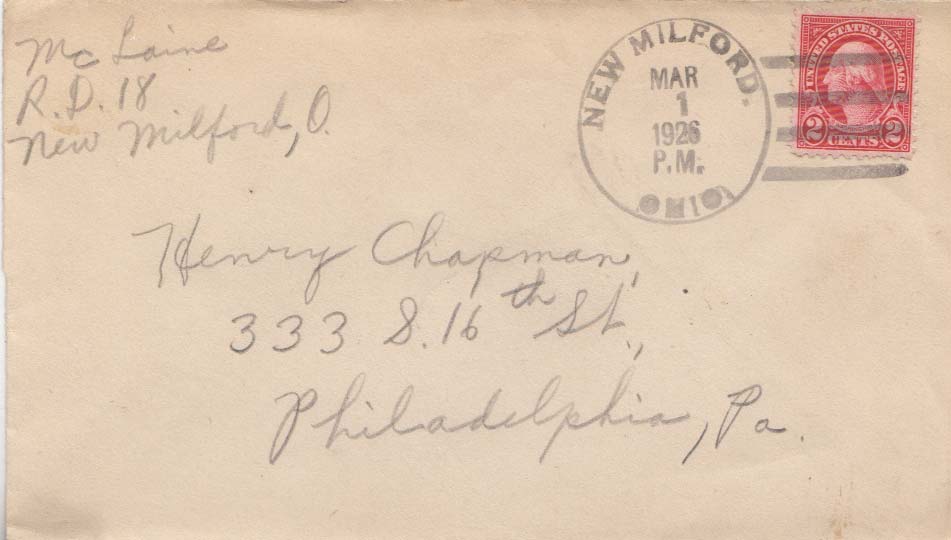 Mc Laine
R.D. 18
New Milford, O.
NEW MILFORD.
MAR
1
1926
P.M.
OHIO
UNITED STATES POSTAGE
2 CENTS 2
Henry Chapman,
333 S. 16th St.,
Philadelphia, Pa.